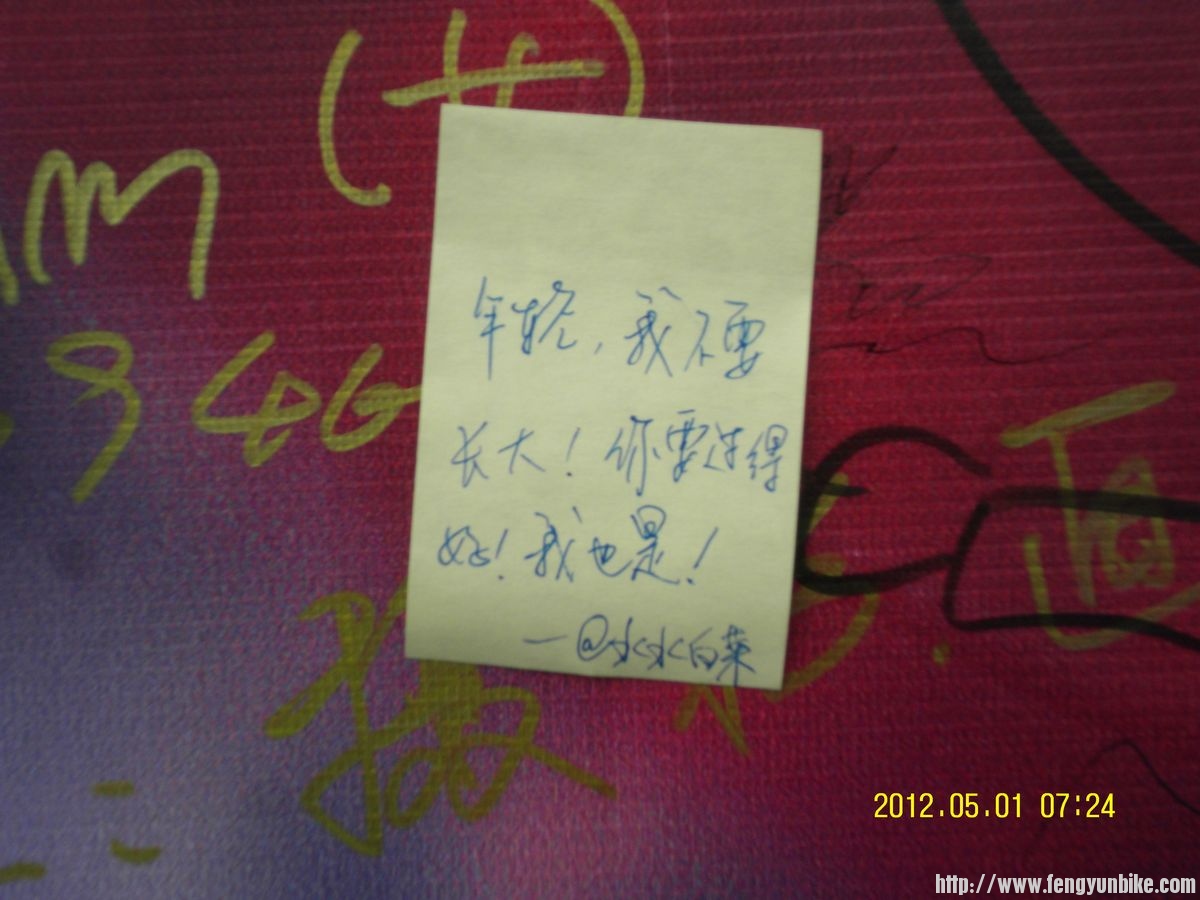 (女)
m
946
年轻，我不要
长大！你要过得
好！我也是！
—@水水白菜
2012.05.01 07:24
http://www.fengyunbike.com